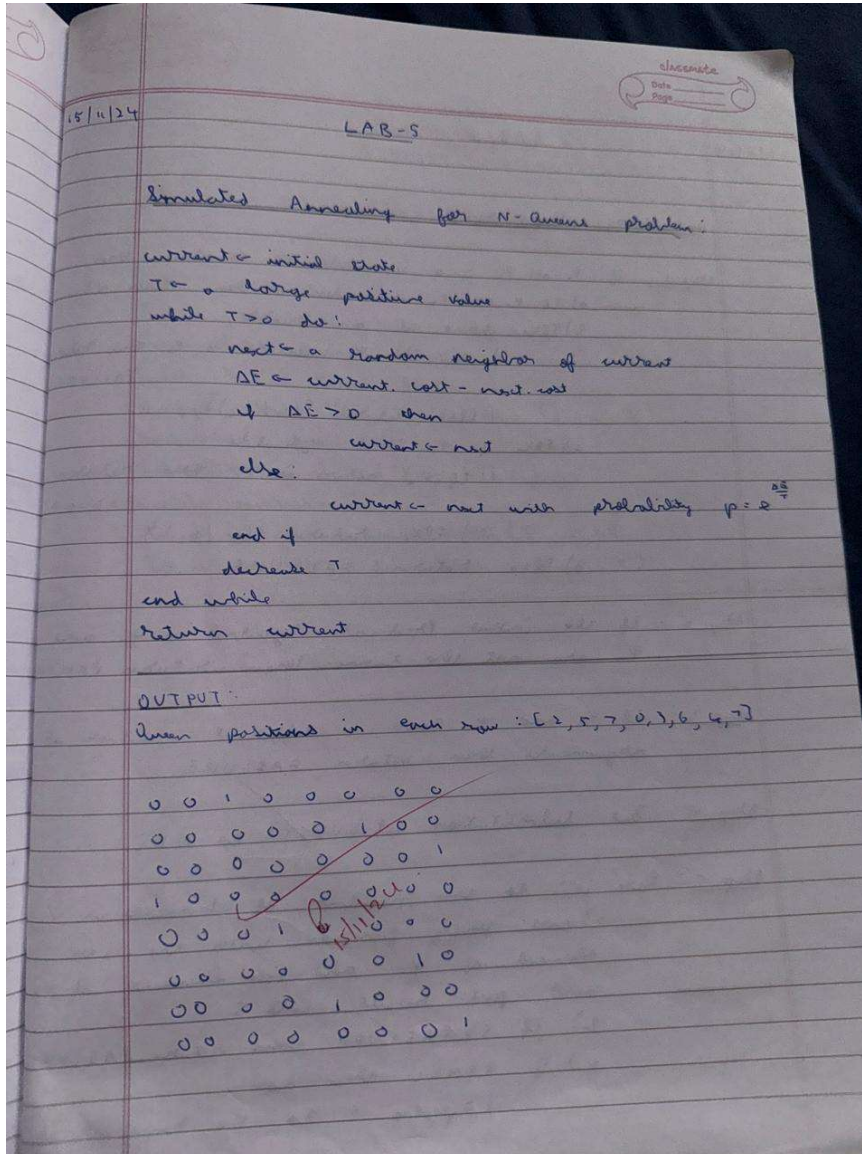 classmate
Date
Page
15/11/24
LAB-5
Simulated Annealing for N-Queens problem:
current ← initial state
T ← a large positive value
while T>0 do:
next ← a random neighbor of current
ΔE ← current.cost - next.cost
if ΔE>0 then
current ← next
else:
current ← next with probability p = e^(ΔE/T)
end if
decrease T
end while
return current
OUTPUT:
Queen positions in each row : [2, 5, 7, 0, 3, 6, 4, 7]
0 0 1 0 0 0 0 0
0 0 0 0 0 1 0 0
0 0 0 0 0 0 0 1
1 0 0 0 0 0 0 0
0 0 0 1 0 0 0 0
0 0 0 0 0 0 1 0
0 0 0 0 1 0 0 0
0 0 0 0 0 0 0 1
15/11/24